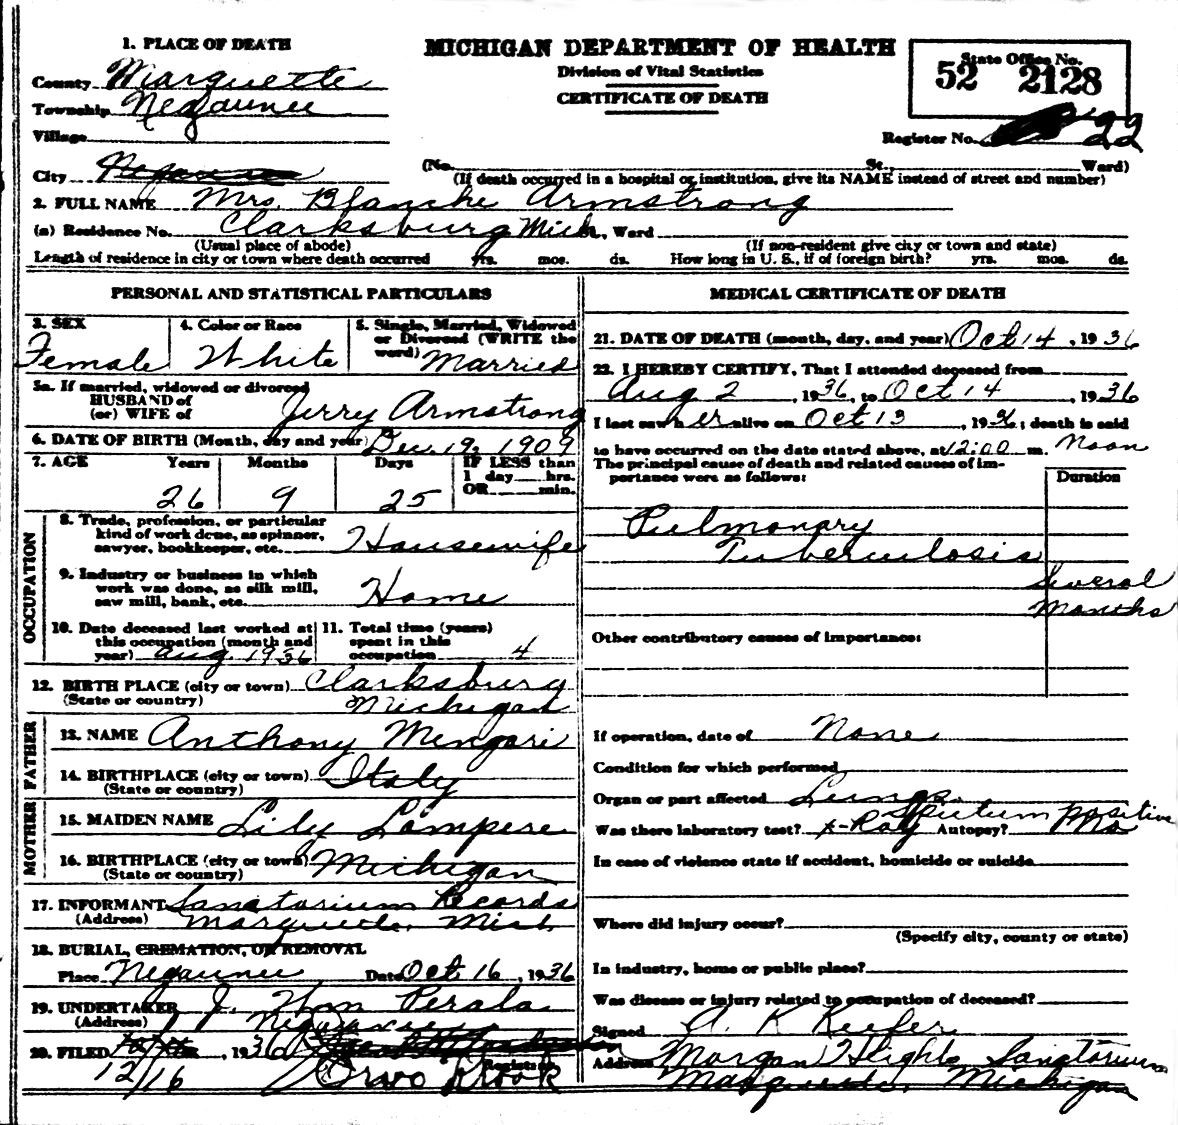 MICHIGAN DEPARTMENT OF HEALTH
Division of Vital Statistics
CERTIFICATE OF DEATH
State Office No.
52 2128
Register No. 22
1. PLACE OF DEATH
County Marquette
Township Negaunee
Village
City Negaunee
(No. St. Ward)
(If death occurred in a hospital or institution, give its NAME instead of street and number)
2. FULL NAME Mrs. Blanche Armstrong
(a) Residence No. Clarksburg Mich., Ward
(Usual place of abode) (If non-resident give city or town and state)
Length of residence in city or town where death occurred yrs. mos. ds. How long in U. S., if of foreign birth? yrs. mos. ds.
PERSONAL AND STATISTICAL PARTICULARS
3. SEX Female
4. Color or Race White
5. Single, Married, Widowed
or Divorced (WRITE the
word) Married
5a. If married, widowed or divorced
HUSBAND of
(or) WIFE of Jerry Armstrong
6. DATE OF BIRTH (Month, day and year) Dec. 19, 1909
7. AGE Years Months Days IF LESS than
1 day hrs.
OR min.
26 9 25
OCCUPATION
8. Trade, profession, or particular
kind of work done, as spinner,
sawyer, bookkeeper, etc. Housewife
9. Industry or business in which
work was done, as silk mill,
saw mill, bank, etc. Home
10. Date deceased last worked at
this occupation (month and
year) Aug. 1936
11. Total time (years)
spent in this
occupation 4
12. BIRTH PLACE (city or town) Clarksburg
(State or country) Michigan
FATHER
13. NAME Anthony Mengari
14. BIRTHPLACE (city or town) Italy
(State or country)
MOTHER
15. MAIDEN NAME Lily Lampere
16. BIRTHPLACE (city or town) Michigan
(State or country)
17. INFORMANT Sanatorium Records
(Address) Marquette, Mich.
18. BURIAL, CREMATION, OR REMOVAL
Place Negaunee Date Oct 16, 1936
19. UNDERTAKER J. Wm Perala
(Address) Negaunee
20. FILED , 1936
12/16 Orvo Kook
Registrar
MEDICAL CERTIFICATE OF DEATH
21. DATE OF DEATH (month, day, and year) Oct 14, 1936
22. I HEREBY CERTIFY, That I attended deceased from
Aug 2, 1936, to Oct 14, 1936
I last saw her alive on Oct 13, 193 ; death is said
to have occurred on the date stated above, at 12:00 m. Noon
The principal cause of death and related causes of im-
portance were as follows:
Duration
Pulmonary
Tuberculosis
Several
Months
Other contributory causes of importance:
If operation, date of None
Condition for which performed
Organ or part affected Lungs
Was there laboratory test? X-Ray Sputum positive Autopsy? No
In case of violence state if accident, homicide or suicide
Where did injury occur?
(Specify city, county or state)
In industry, home or public place?
Was disease or injury related to occupation of deceased?
Signed A. K Keefer
Address Morgan Heights Sanatorium
Marquette, Michigan